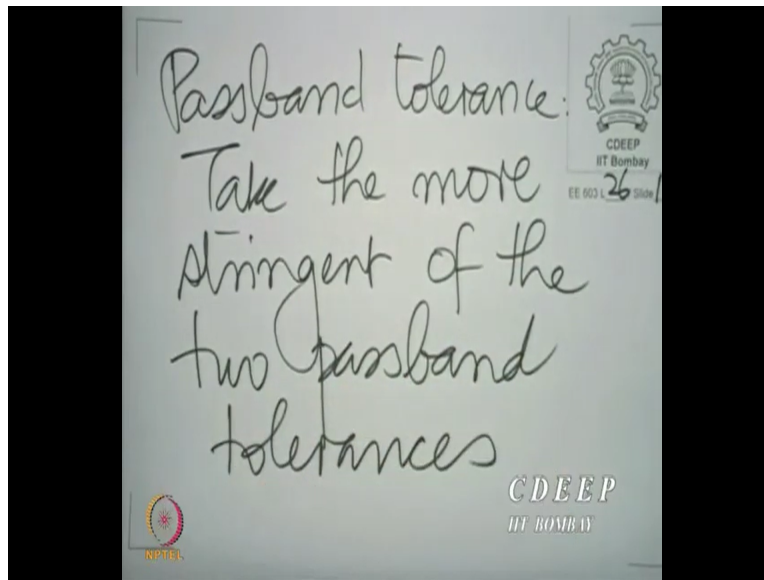 Passband tolerance:
Take the more
stringent of the
two passband
tolerances
CDEEP
IIT Bombay
EE 603 L 26 Slide 1
CDEEP
IIT BOMBAY
NPTEL